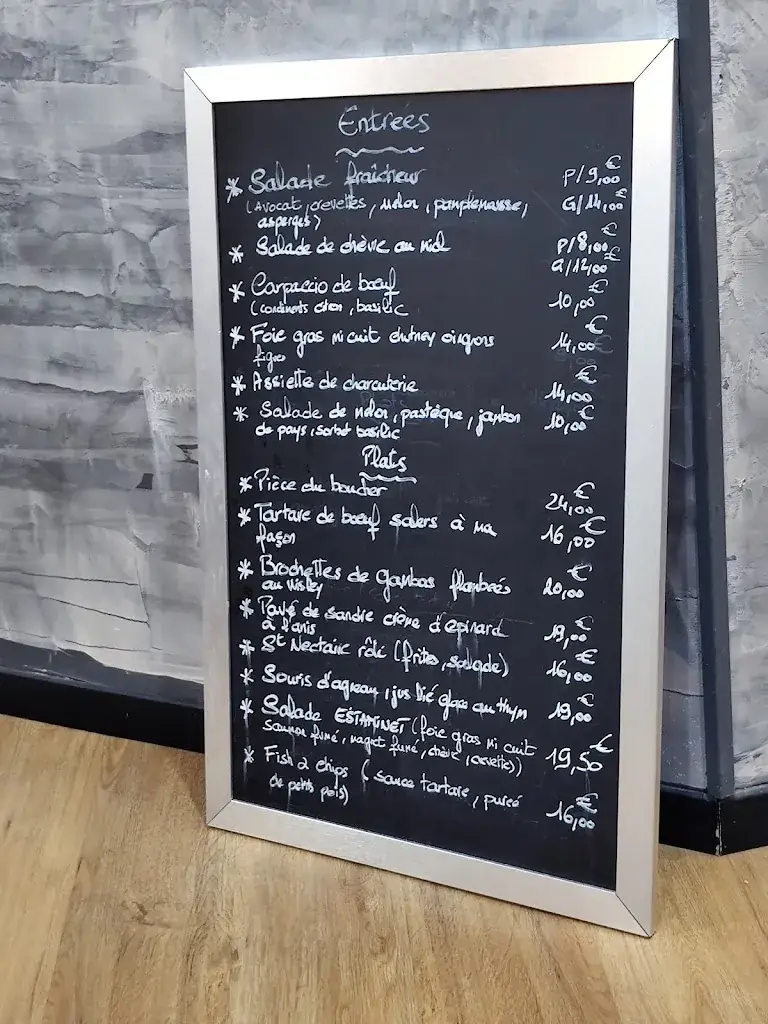 Entrées
* Salade fraîcheur P/9,00€
(Avocat, crevettes, melon, pamplemousse, G/14,00€
asperges)
* Salade de chèvre au miel P/8,00€
G/12,00€
* Carpaccio de bœuf 10,00€
(condiments citron, basilic
* Foie gras mi cuit chutney oignons 14,00€
figues
* Assiette de charcuterie 14,00€
* Salade de melon, pastèque, jambon 10,00€
de pays, sorbet basilic
Plats
* Pièce du boucher 24,00€
* Tartare de bœuf salers à ma 16,00€
façon
* Brochettes de gambas flambées 20,00€
au wisky
* Pavé de sandre crème d'épinard 19,00€
à l'anis
* St Nectaire rôti (frites, salade) 16,00€
* Souris d'agneau, jus lié glace au thym 19,00€
* Salade ESTAMINET (foie gras mi cuit 19,50€
saumon fumé, magret fumé, chèvre, crevettes))
* Fish & chips (sauce tartare, purée 16,00€
de petits pois)